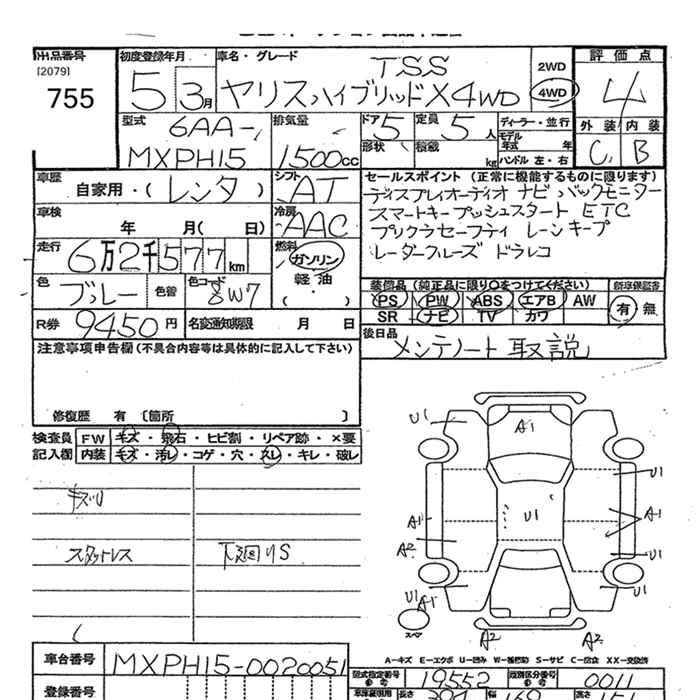 出品番号
[2079]
755
初度登録年月
5 3月
車名・グレード
TSS
ヤリスハイブリッドX4WD
2WD
4WD
評価点
4
外装 内装
C B
型式
6AA-
MXPH15
排気量
1500cc
ドア 5
定員 5人
形状
積載 kg
ディーラー・並行
モデル
年式 年
ハンドル 左・右
車歴
自家用・(レンタ)
シフト
AT
車検
年 月( 日)
冷房
AAC
走行
6万2千577km
燃料
ガソリン
軽油
(・)
色
ブルー
色替
色コード
8W7
R券
9450円
名変通知期限 月 日
セールスポイント(正常に機能するものに限ります)
ディスプレイオーディオ ナビ バックモニター
スマートキー プッシュスタート ETC
プリクラセーフティ レーンキープ
レーダークルーズ ドラレコ
装備品(純正品に限り○をつけてください)
PS PW ABS エアB AW
SR ナビ TV カワ
新車保証書
有・無
後日品
メンテノート 取説
注意事項申告欄(不具合内容等は具体的に記入して下さい)
修復歴 有〔箇所 〕
検査員
記入欄
FW キズ・飛石・ヒビ割・リペア跡・×要
内装 キズ・汚レ・コゲ・穴・スレ・キレ・破レ
キズU
スタットレス
下廻りS
U1
A1
U1
U1
A1
A1
A2
U1
U1
A1
スペア
A2
A2
A-キズ E-エクボ U-凹み W-補修跡 S-サビ C-腐食 XX-交換済
車台番号
MXPH15-0020051
型式指定番号
19552
類別区分番号
0011
登録番号
長さ
幅
高さ